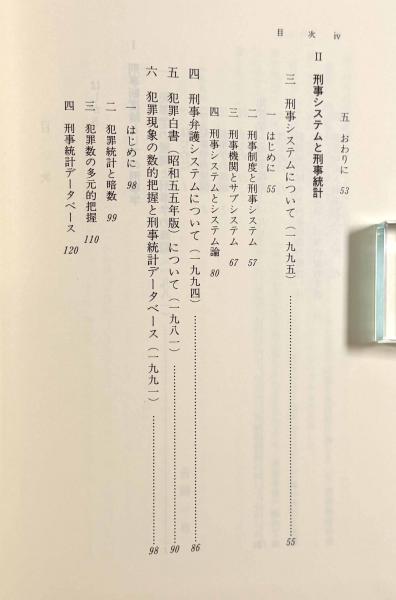 目次 iv
五 おわりに 53
II 刑事システムと刑事統計
三 刑事システムについて（一九九五）……………………55
一 はじめに 55
二 刑事制度と刑事システム 57
三 刑事機関とサブシステム 67
四 刑事システムとシステム論 80
四 刑事弁護システムについて（一九九四）……………………86
五 犯罪白書（昭和五五年版）について（一九八一）……………………90
六 犯罪現象の数的把握と刑事統計データベース（一九九一）……………………98
一 はじめに 98
二 犯罪統計と暗数 99
三 犯罪数の多元的把握 110
四 刑事統計データベース 120